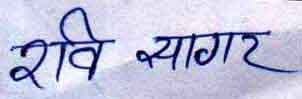 रवि सागर